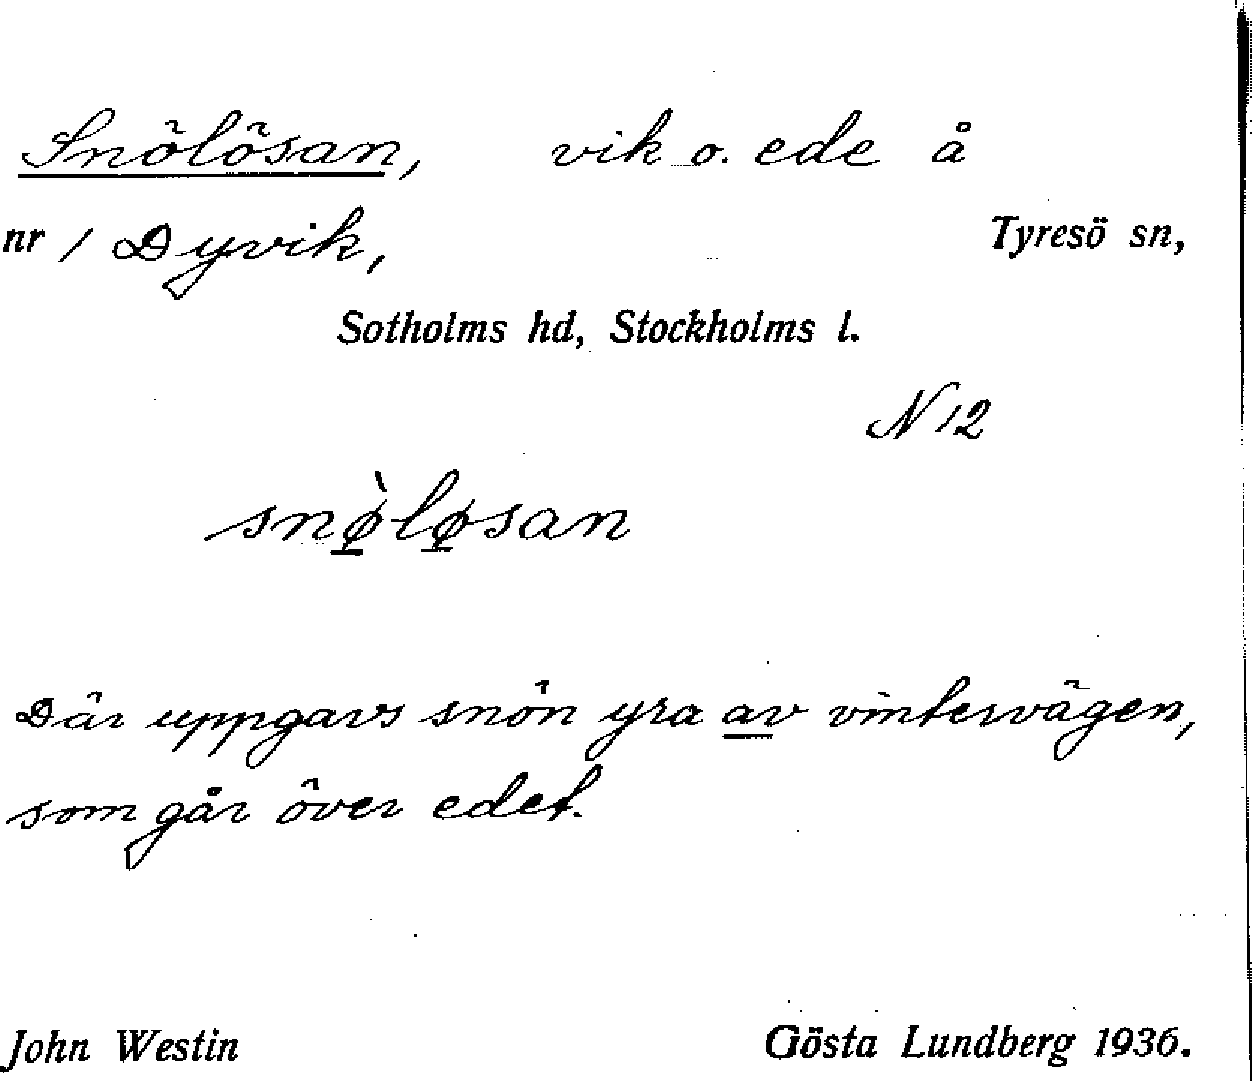 Snölösan, vik o. ede å
nr 1 Dyvik, Tyresö sn,
Sotholms hd, Stockholms l.
N 12
snø̱̀lø̱san
Där uppgavs snön yra av vintervägen,
som går över edet.
John Westin Gösta Lundberg 1936.